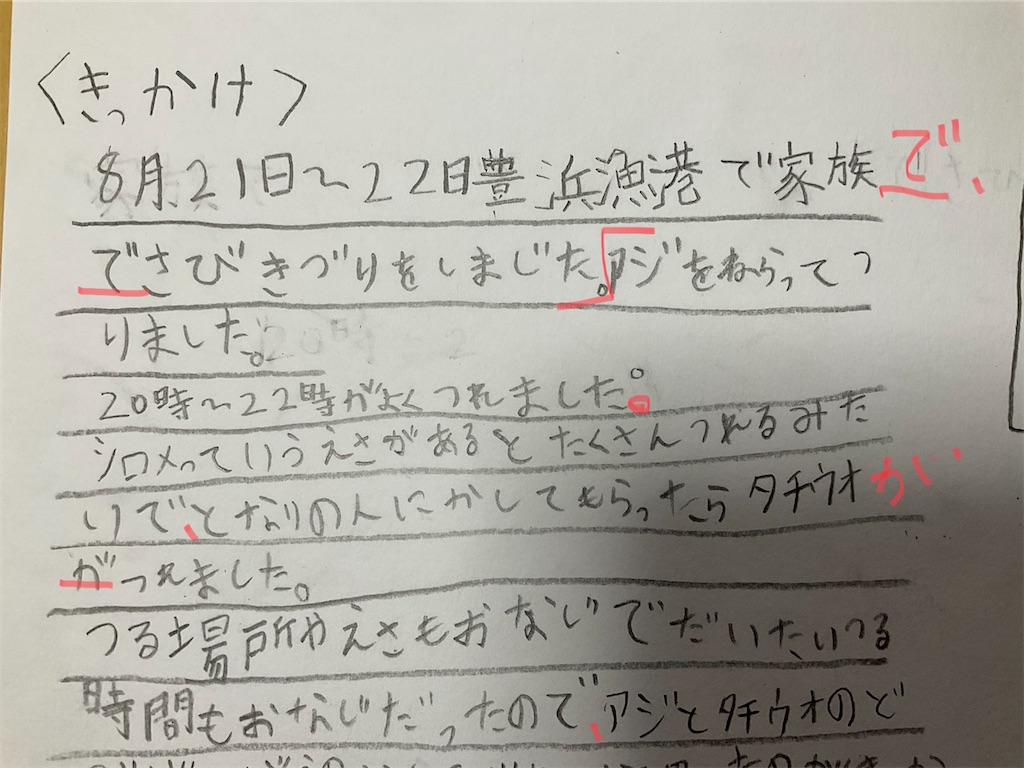 〈きっかけ〉
8月21日～22日豊浜漁港で家族で、
でさびきづりをしました。アジをねらってつ
りました。
20時～22時がよくつれました。
シロメっていうえさがあるとたくさんつれるみた
いで、となりの人にかしてもらったらタチウオが
がつれました。
つる場所やえさもおなじでだいたいつる
時間もおなじだったので、アジとタチウオのど